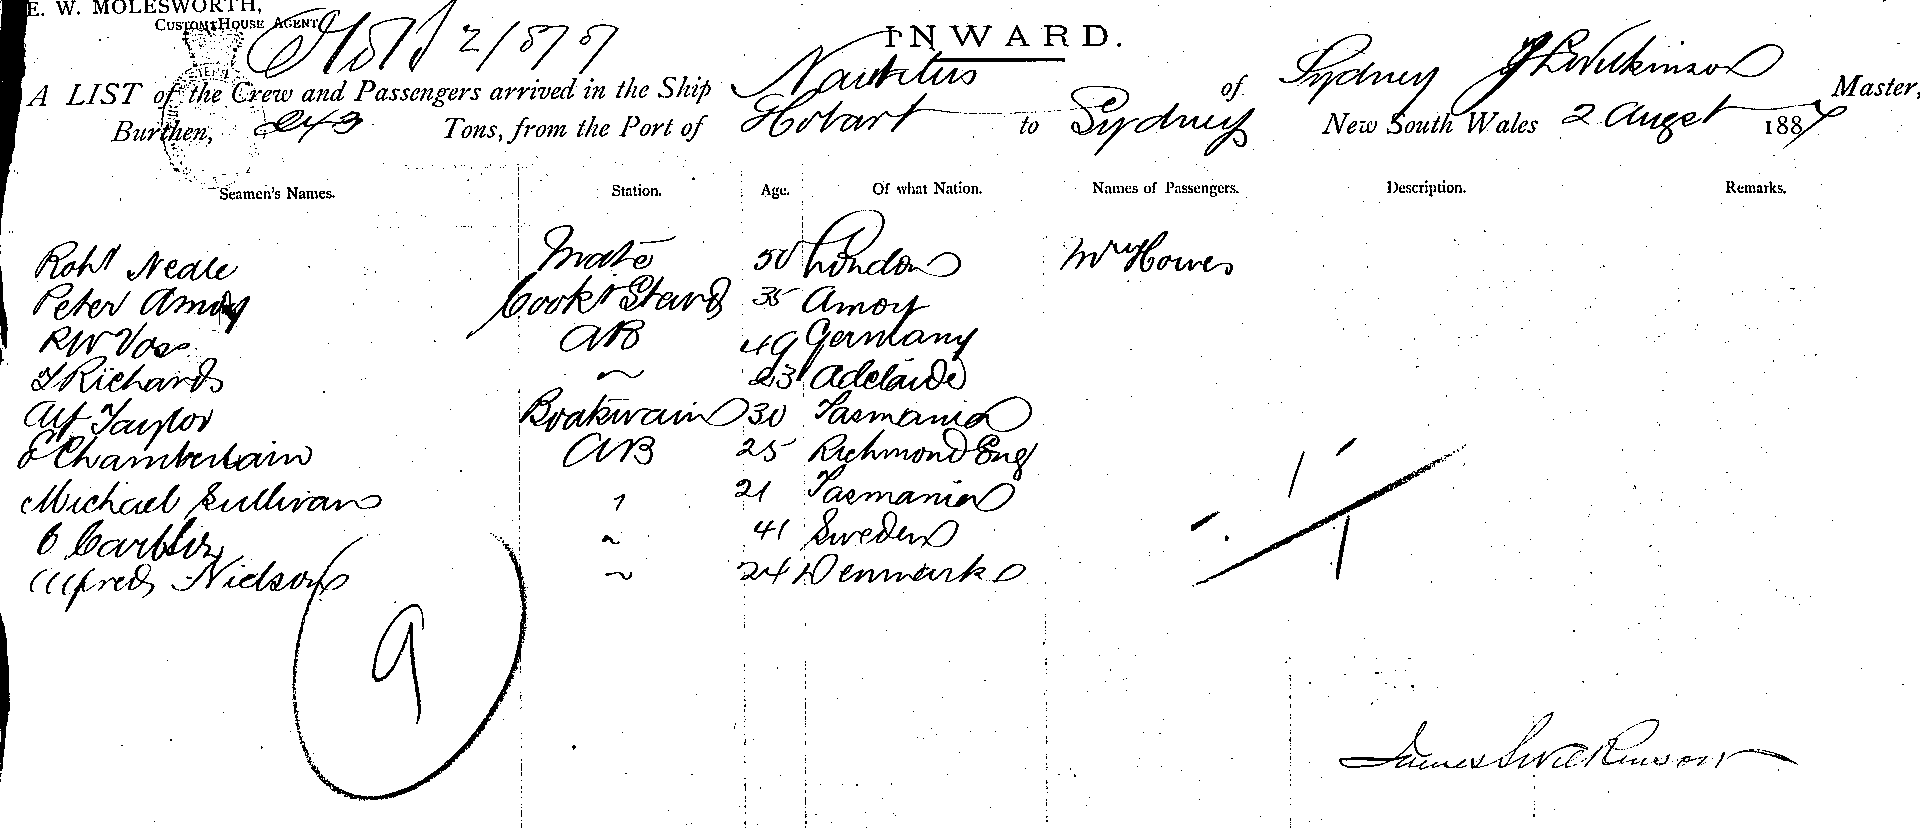 E. W. MOLESWORTH,
CUSTOMS HOUSE AGENT
2/8/87
INWARD.
A LIST of the Crew and Passengers arrived in the Ship Nautilus of Sydney J S Wilkinson Master,
Burthen, 243 Tons, from the Port of Hobart to Sydney New South Wales 2 Augst 1887
Seamen's Names. Station. Age. Of what Nation. Names of Passengers. Description. Remarks.
Robt Nedle Mate 50 London Mrs Howes
Peter Amoy Cook & Steward 35 Amoy
RW Voss AB 49 Germany
T Richards ~ 23 Adelaide
Alf Taylor Boatswain 30 Tasmania
Chamberlain AB 25 Richmond Eng
Michael Sullivan " 21 Tasmania
C ~ 41 Sweden
Alfred Nielson ~ 24 Denmark
9
James S Wilkinson